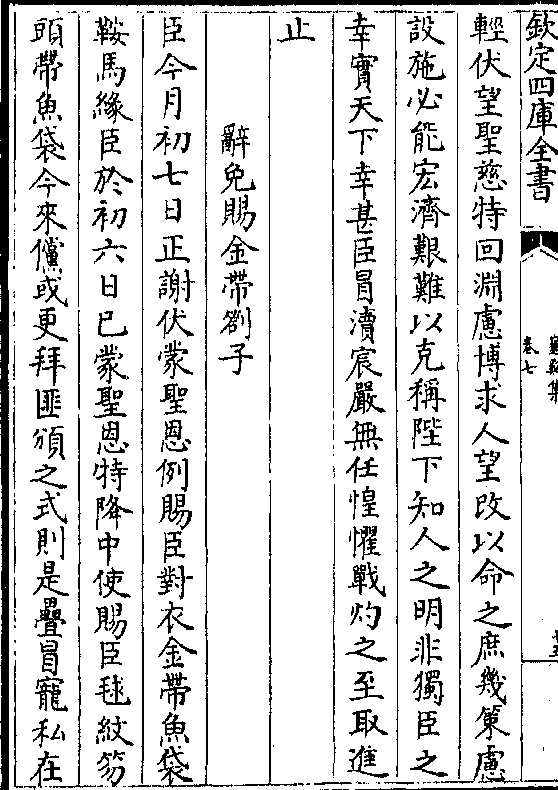 欽定四庫全書
卷七
輕伏望聖慈特回淵慮博求人望改以命之庶幾策慮
設施必能宏濟艱難以克稱陛下知人之明非獨臣之
幸實天下幸甚臣冒瀆宸嚴無任惶懼戰灼之至取進
止
辭免賜金帶劄子
臣今月初七日正謝伏蒙聖恩例賜臣對衣金帶魚袋
鞍馬緣臣於初六日已蒙聖恩特降中使賜臣毬紋笏
頭帶魚袋今來儻或更拜匪頒之式則是疊冒寵私在